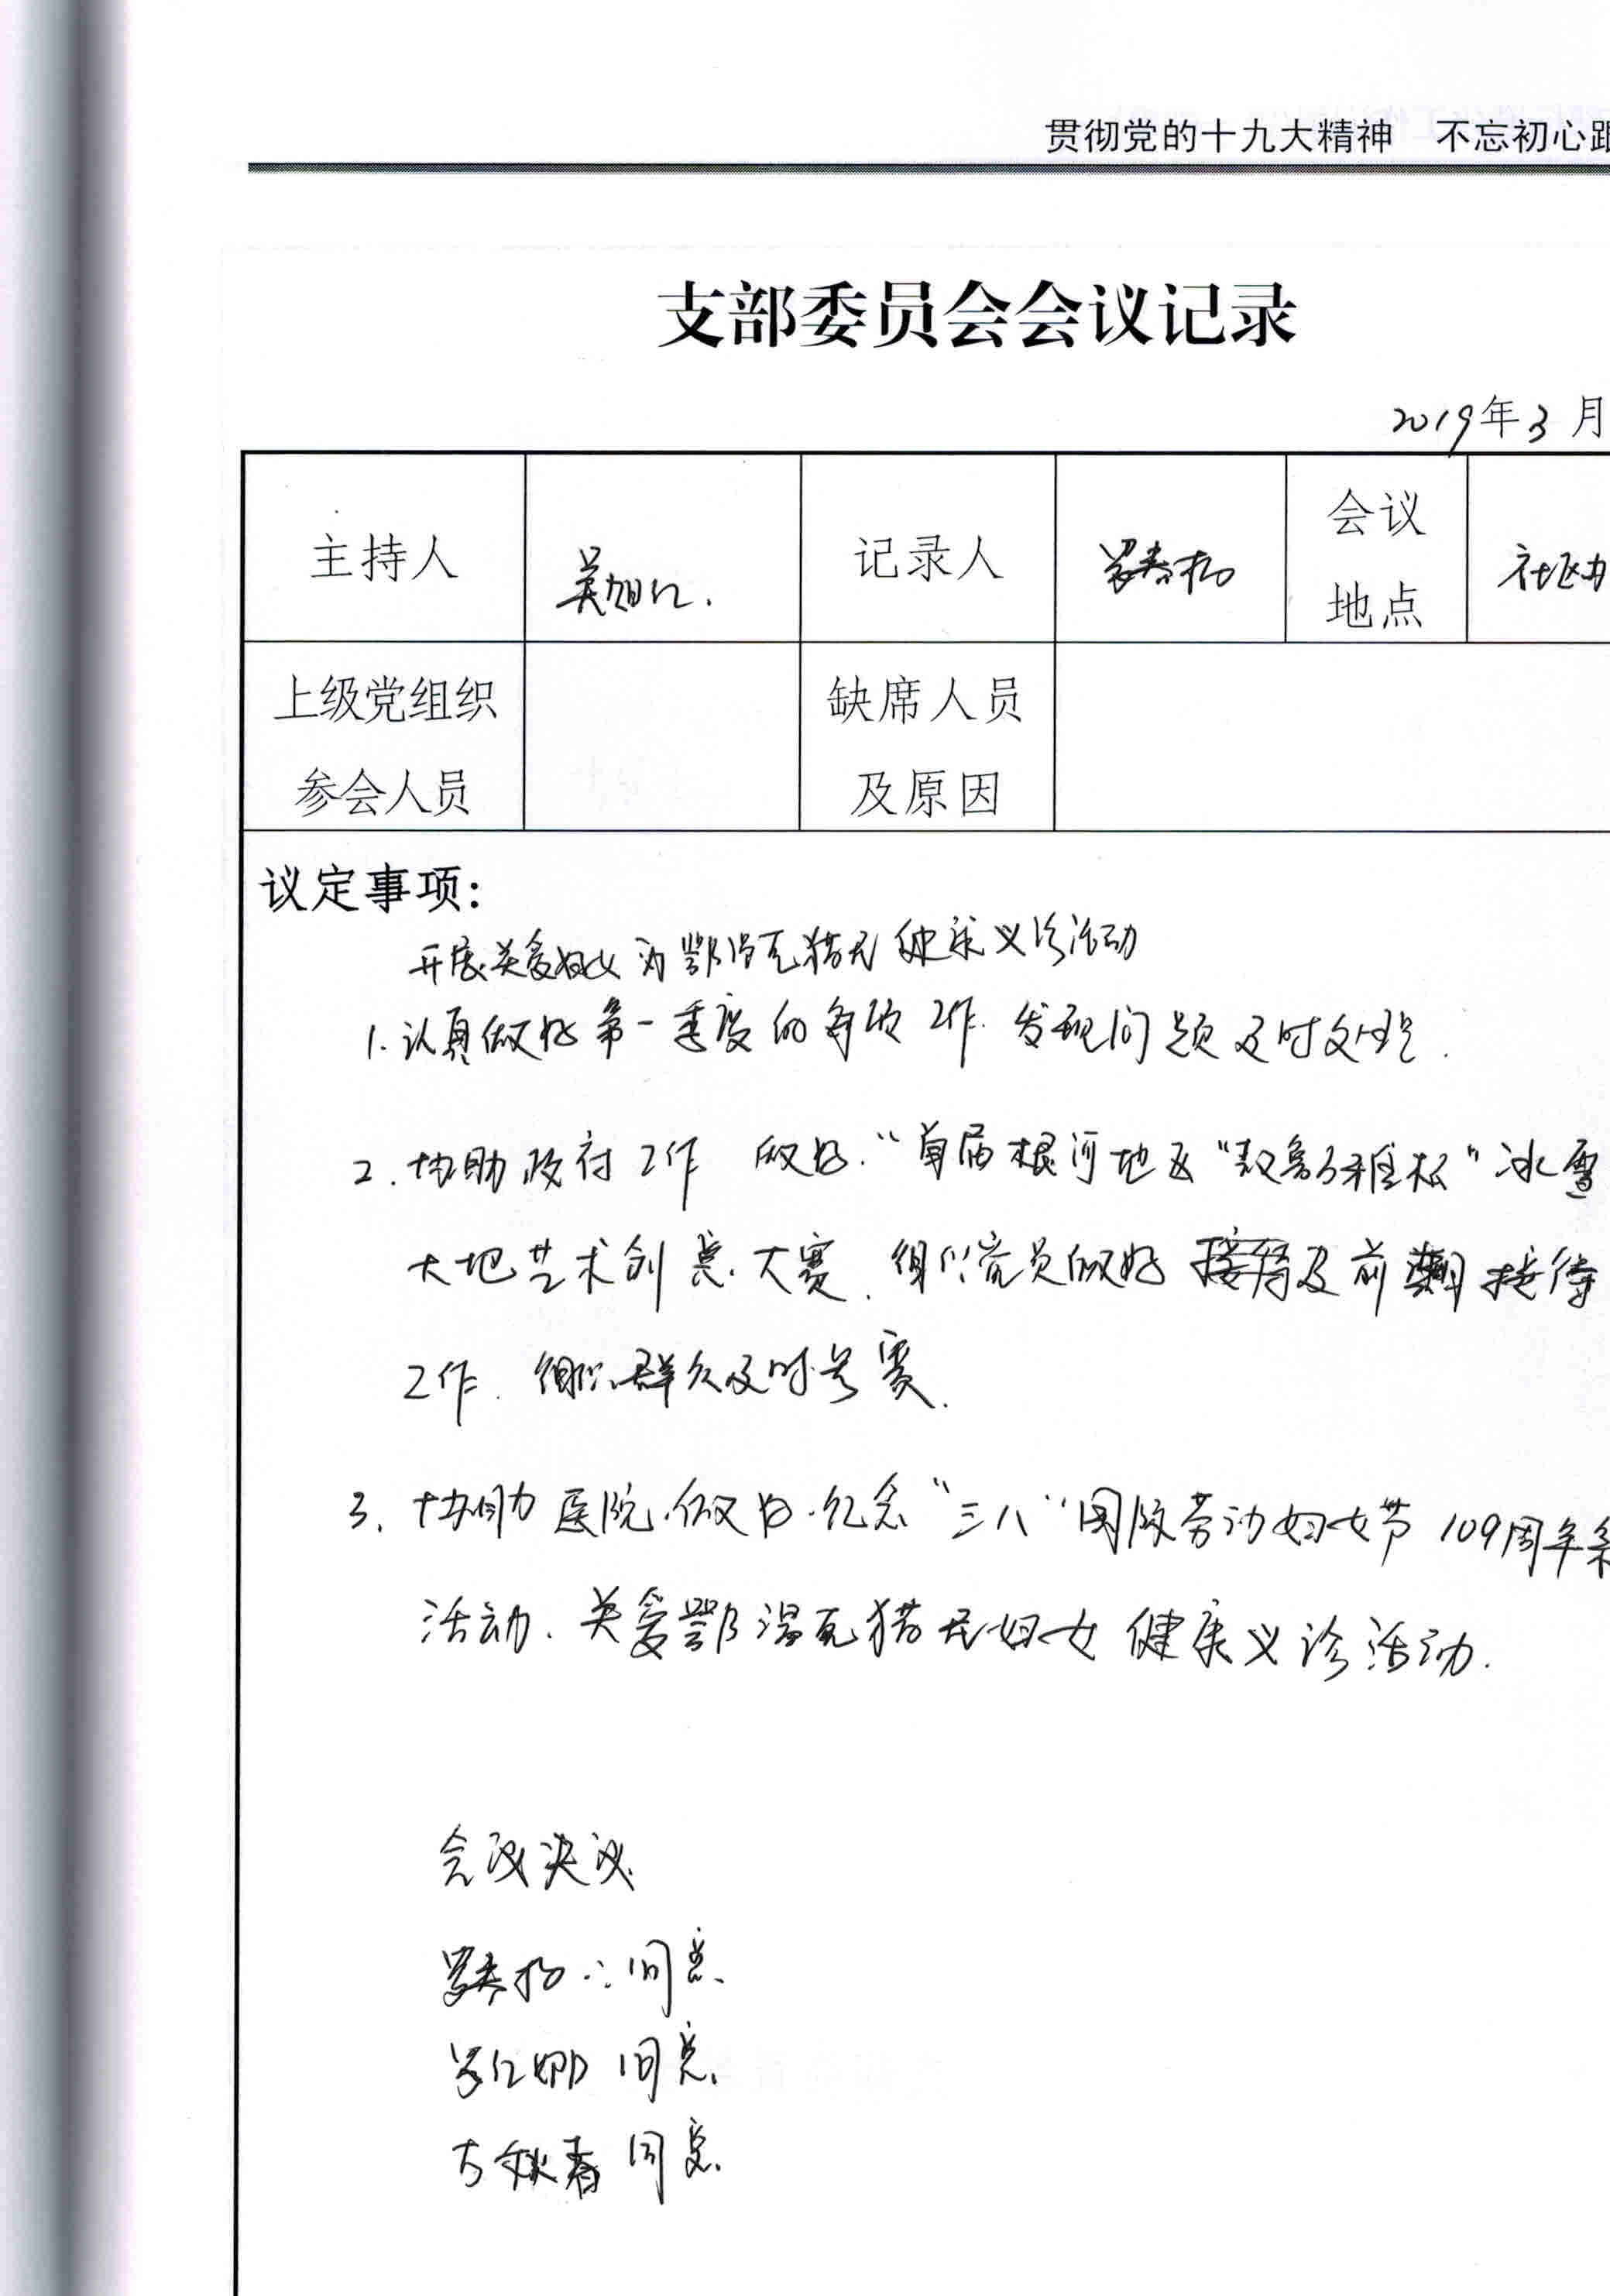 贯彻党的十九大精神 不忘初心跟
支部委员会会议记录
2019年3月
主持人 吴旭红. 记录人 会议地点 社区办
上级党组织参会人员 缺席人员及原因
议定事项:
开展关爱妇女为鄂温克猎民健康义诊活动
1. 认真做好第一季度的各项工作. 发现问题及时处理.
2. 协助政府工作 做好."首届根河地区"敖鲁古雅杯"冰雪
大地艺术创意大赛、组织党员做好 及前期接待
工作. 组织群众及时参赛.
3. 协助医院做好纪念"三八"国际劳动妇女节109周年系
活动、关爱鄂温克猎民妇女健康义诊活动.
会议决议
同意
同意
古秋春 同意